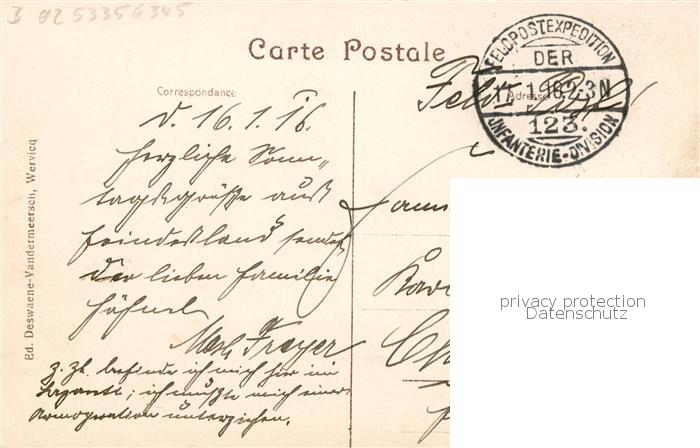 3 02 533556345
Carte Postale
Correspondance
Adresse
FELDPOSTEXPEDITION
DER
17. 1. 16. 2-3 N
123.
INFANTERIE-DIVISION
Feldpost
d. 16. 1. 16.
Herzliche Sonn„
tagsgrüße aus
Feindesland sendet
der lieben Familie
Höfnel
Max Freyer
z. Zt. befinde ich mich hier im
Lazarett; ich mußte mich einer
Operation unterziehen.
Fam
Ed. Deswaene-Vandermeersch, Wervicq
privacy protection
Datenschutz